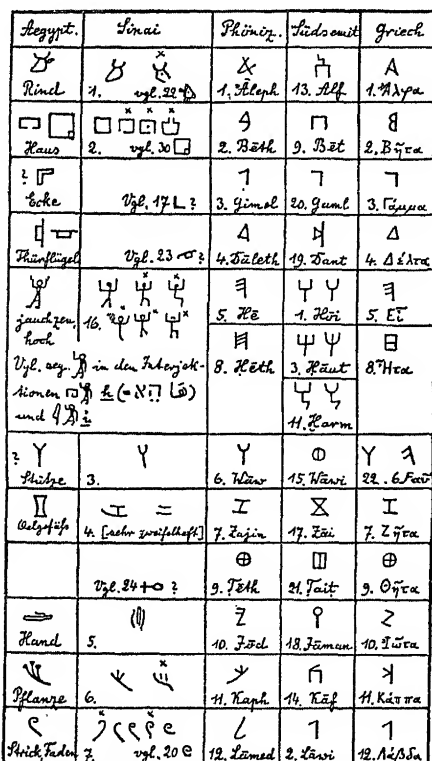 Aegypt. Sinai Phöniz. Südsemit Griech
Rind 1. vgl. 22 1. Āleph 13. Alf 1. Ἄλφα
Haus 2. vgl. 30 2. Bēth 9. Bēt 2. Βῆτα
? Ecke Vgl. 17 L ? 3. Gimel 20. Gaml 3. Γάμμα
Thürflügel Vgl. 23 ? 4. Dāleth 19. Dant 4. Δέλτα
jauchzen, hoch 16. 5. Hē 1. Hōi 5. Εἶ
Vgl. aeg. in den Interjek-
tionen h (= הא הָּ)
und i
8. Ḥēth 3. Ḥaut 8. Ἦτα
11. Ḫarm
? Stütze 3. 6. Wāw 15. Wāwi 22. 6. Ϝαῦ
Oelgefäß 4. [sehr zweifelhaft] 7. Zajin 17. Zāi 7. Ζῆτα
Vgl. 24 ? 9. Ṭēth 21. Ṭait 9. Θῆτα
Hand 5. 10. Jōd 18. Jāman 10. Ἰῶτα
Pflanze 6. 11. Kaph 14. Kāf 11. Κάππα
Strick, Faden 7. vgl. 20 12. Lāmed 2. Lāwi 12. Λάβδα